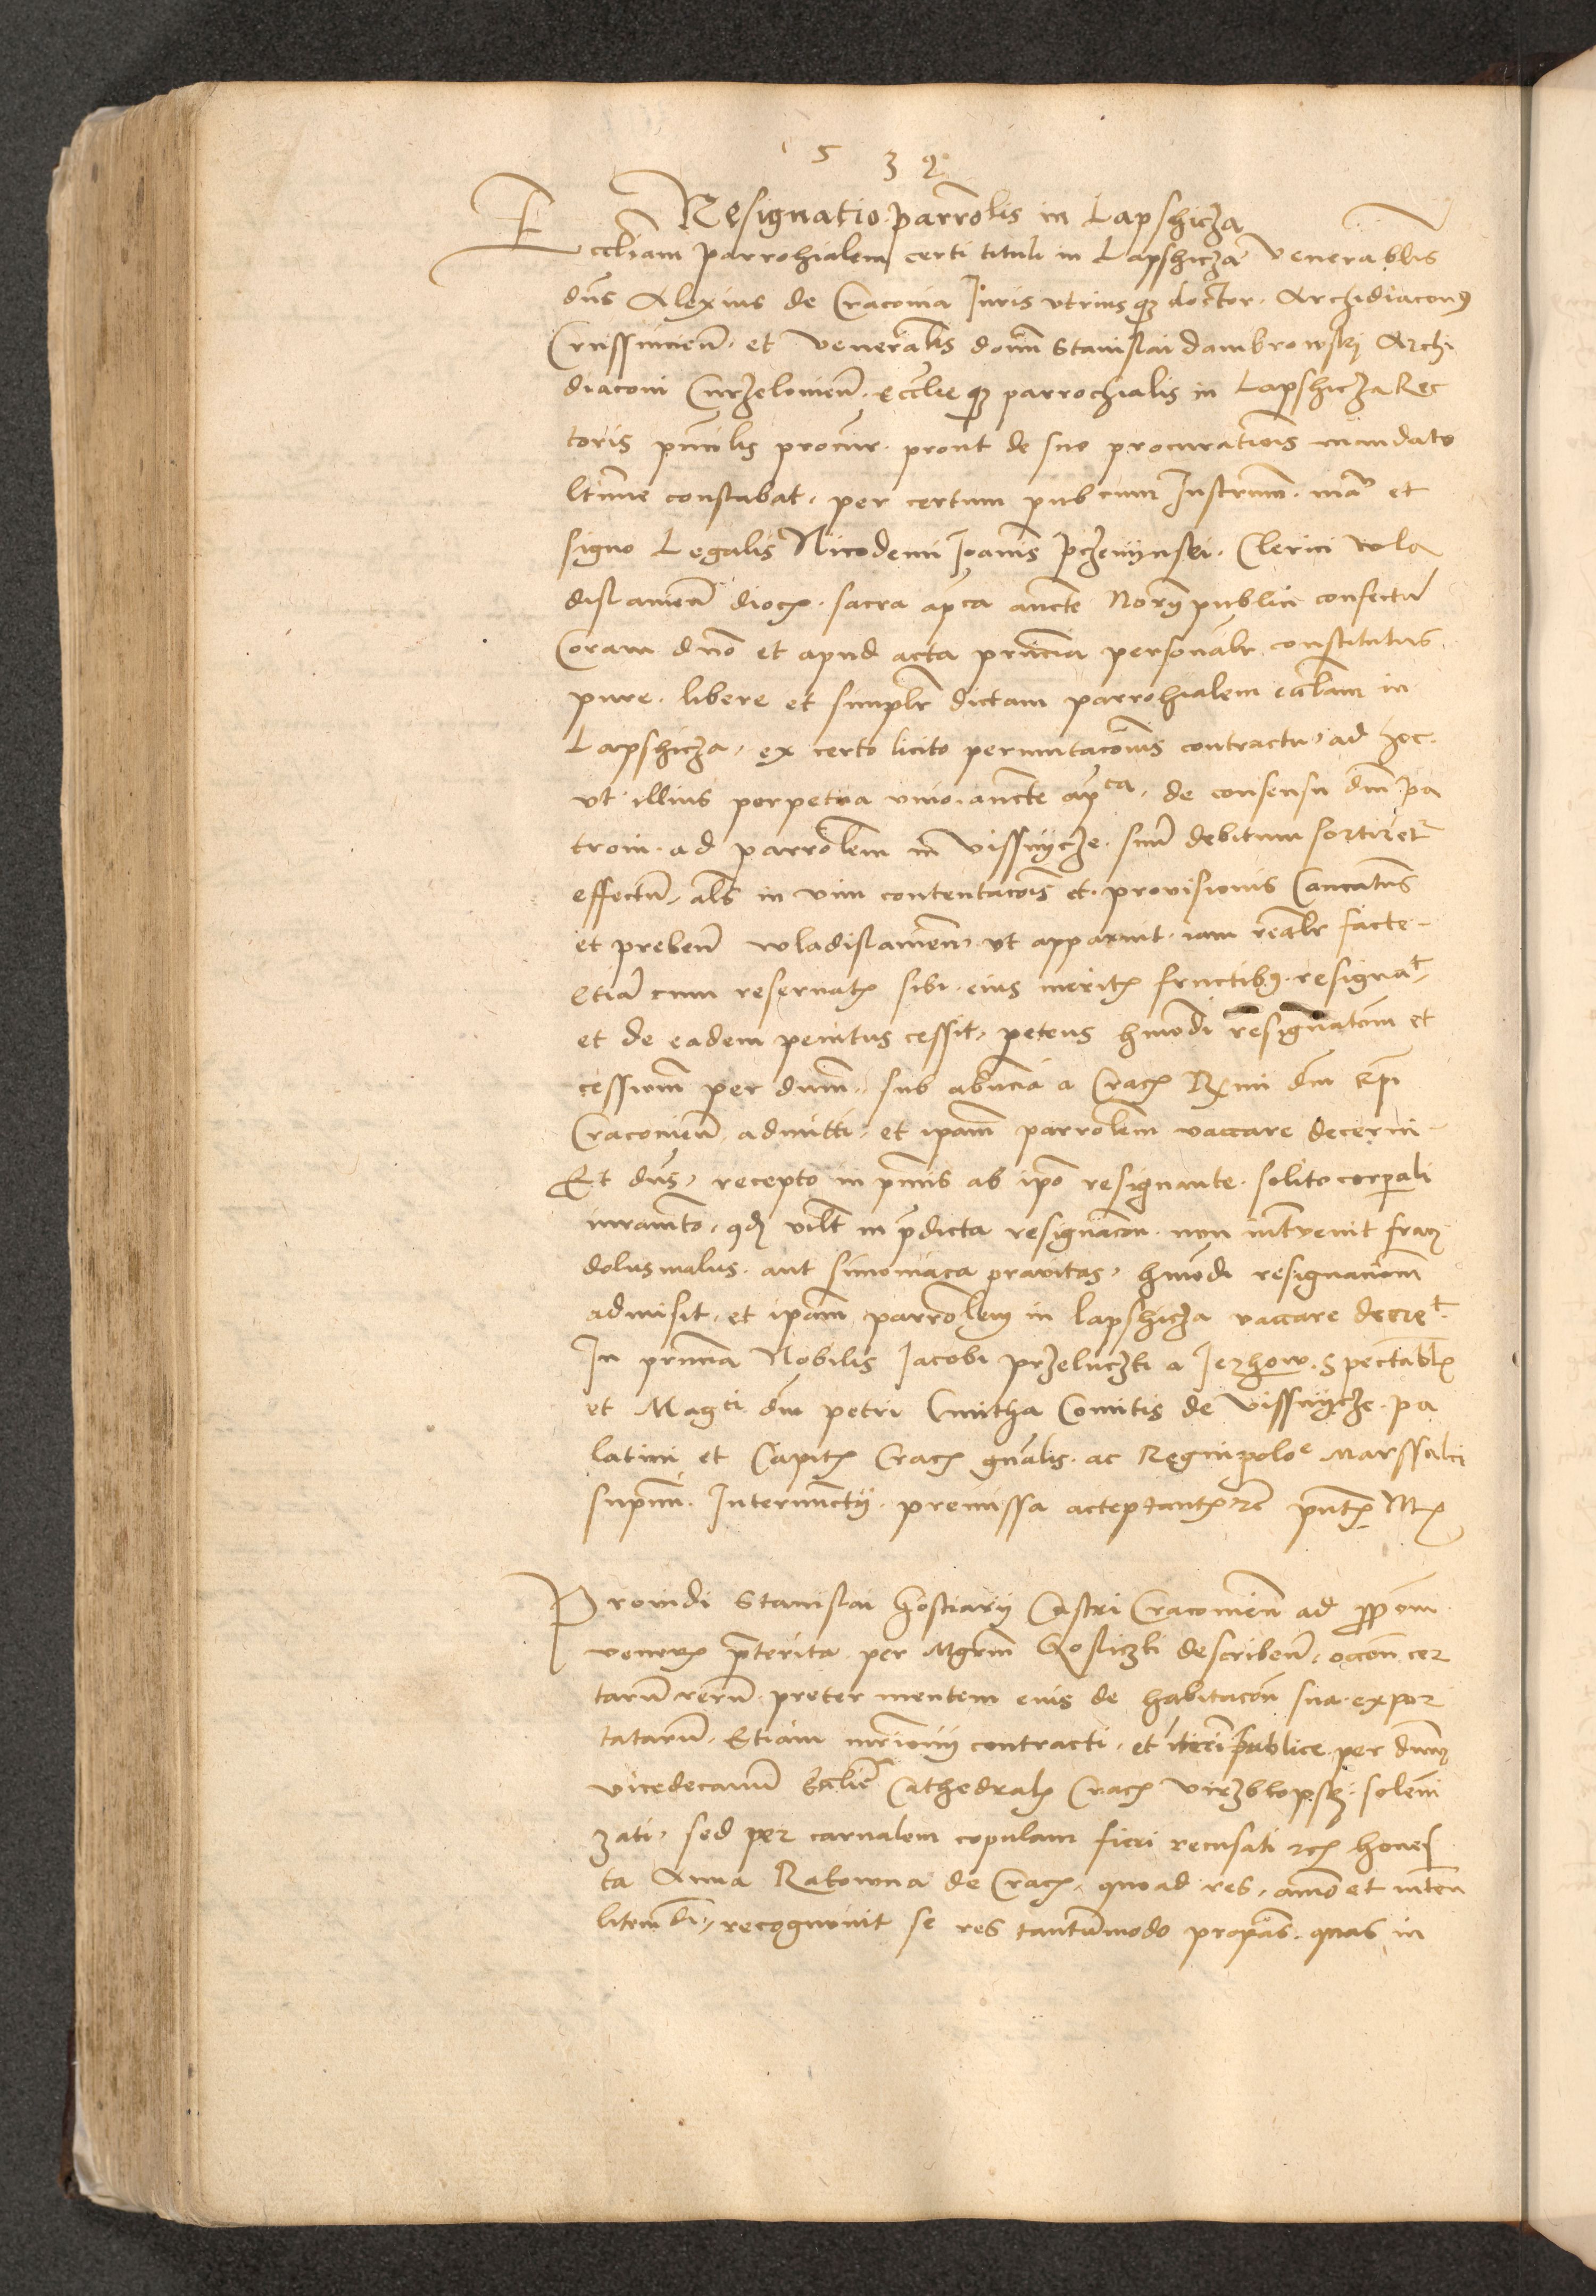 1 5 3 9
Resignatio parrolis in Lapshicza
Eccliam parrohialem certi tituli in Lapshicza Venerablis
dns Alexius de Cracovia Juris utriusqz doctor Archidiaconus
et Venerablis domini Stanislai Dambrowskj Archi
diaconi Curzeloviensis eccliæqz parrochialis in Lapshicza Rec
toris prout de suo procurationis mandato
ltime constabat, per certum pubcum Instrum manu et
signo Legalis Nicodemi Joanis Clerici wla
dislavien dioc. sacra apca aucte Norÿ publici confectū
Coram dno et apud acta pñcia personalr constitutus
pure libere et simplr dictam parrohialem eccliam in
Lapshicza, ex certo licito permutacionis contractu ad hoc
ut illius perpetua unio aucte apca, de consensu dni pa
troni ad parrolem in Vissnycze suū debitum sortiretr
effectū, als in vim contentacois et provisionis Canctatus
et preben wladislavien, ut apparuit iam realr facte
Etiā cum reservatis sibi eius fructibus resignat,
et de eadem penitus cessit, petens hmodi resignatom et
cessionem per dnum sub abncia a Crac Rxmi dni Epi
Cracovien admitti, et ipam parrolem vaccare decerni
Et dns, recepto in primis ab ipo resignante solito corporali
iuramto, qd in pdicta resignacon non intvenit fraus
dolus malus aut simoniaca pravitas, hmodi resignaciom
admisit, et ipam parrolem in lapshicza vaccare decret
In pñcia Nobilis Jacobi przeluczki a Jezhow Spectablis
et Magci dni petri Cmitha Comitis de Vissnycze pa
latini et Capit Crac gnalis ac Regni polo Marssalci
supmi Internuctÿ premissa acceptantis pñt
Providi Stanislai hostiarÿ Castri Cracovien ad
veneris pterita per Mgrm Gosliczki describen, occon cer
tarū rerū preter mentem eius de habitacon sua expor
tatarū, Etiam contracti, et publice per dnum
vicedecanū Ecclie Cathedralis Crac solenni
zati, sed per carnalem copulam fieri recusati hones
ta Anna Rakowna de Crac, quoad res, et
recognovit se res tantūmodo propias quas in